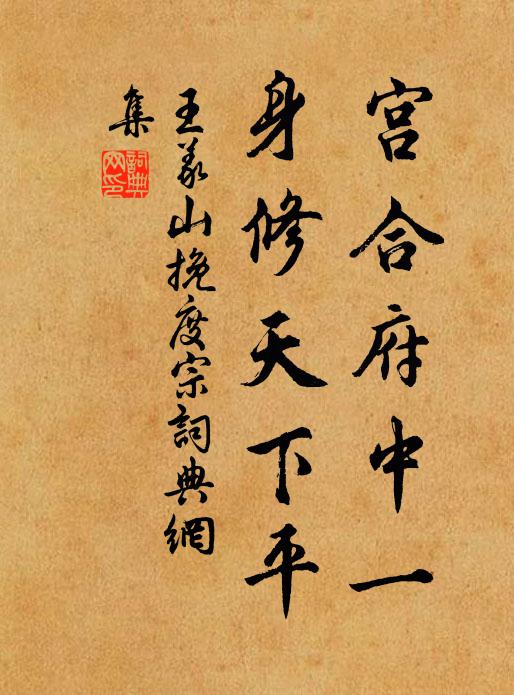 宫合府中一
身修天下平
王義山挽度宗詞典網
集
詞典網印